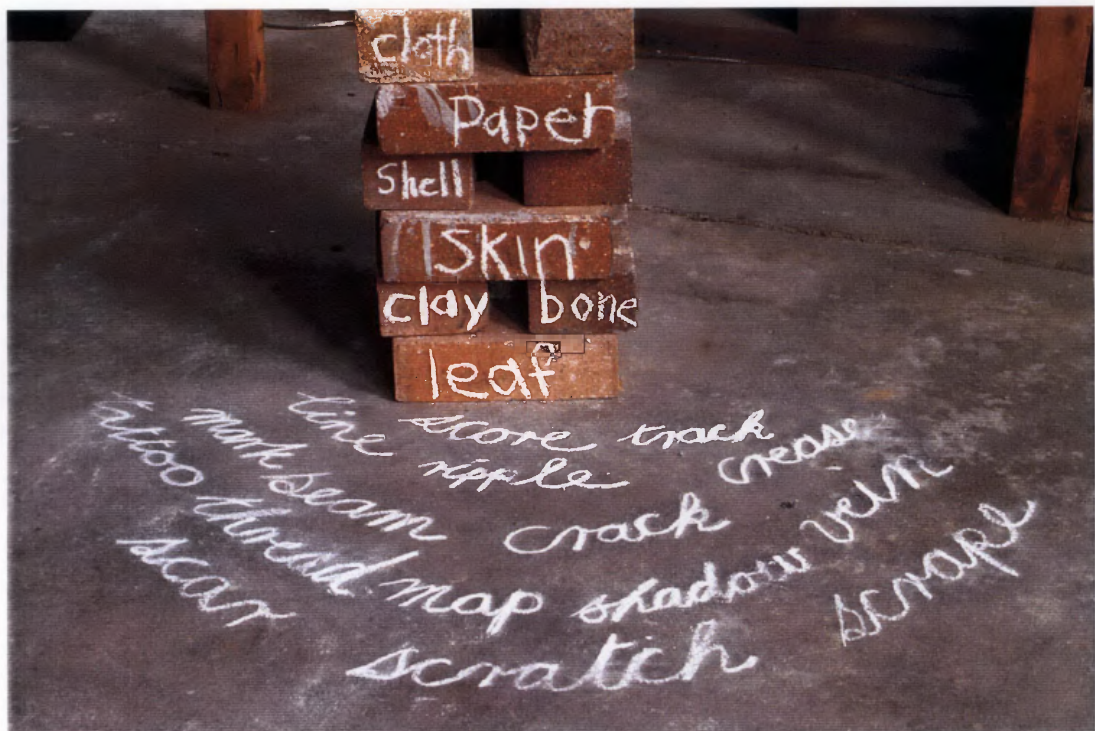 cloth
Paper
Shell
SKIN
clay bone
leaf
line score track
mark ripple crease
tattoo seam crack vein
thread map shadow
scar scratch scrape